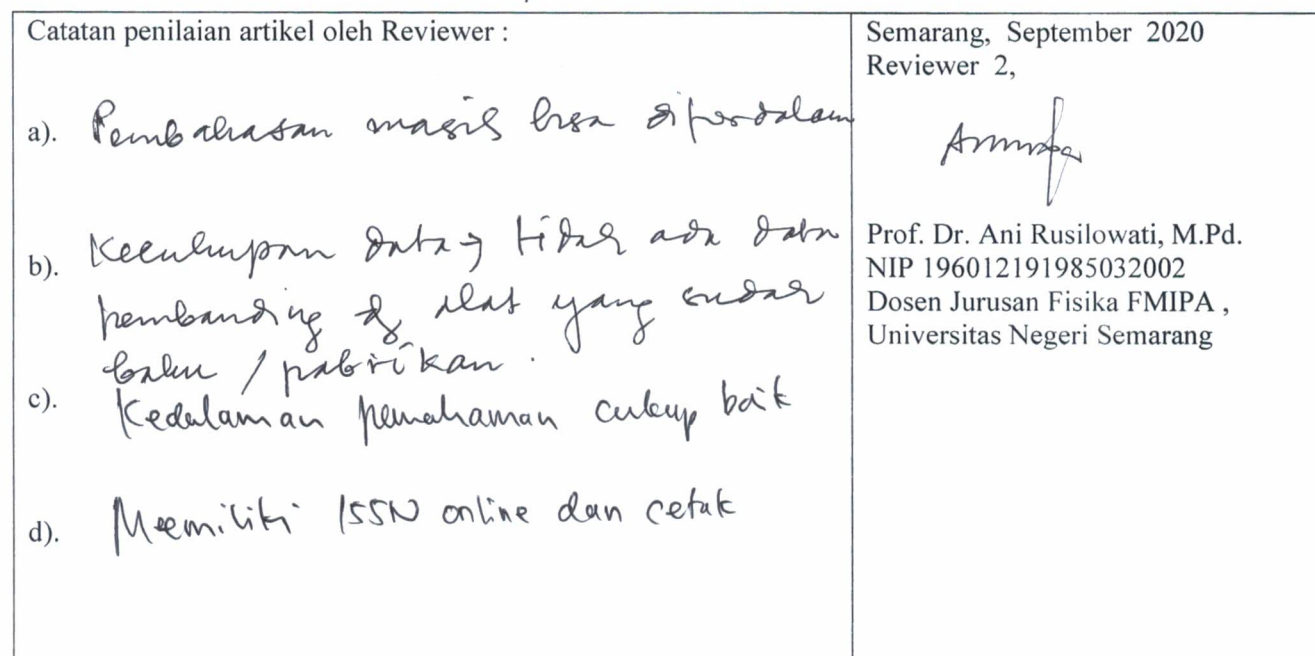 Catatan penilaian artikel oleh Reviewer :
a). Pembahasan masih bisa diperdalam
b). Kecukupan data → tidak ada data
pembanding dg alat yang sudah
baku / pabrikan.
c). Kedalaman pemahaman cukup baik
d). Memiliki ISSN online dan cetak
Semarang, September 2020
Reviewer 2,
Prof. Dr. Ani Rusilowati, M.Pd.
NIP 196012191985032002
Dosen Jurusan Fisika FMIPA ,
Universitas Negeri Semarang